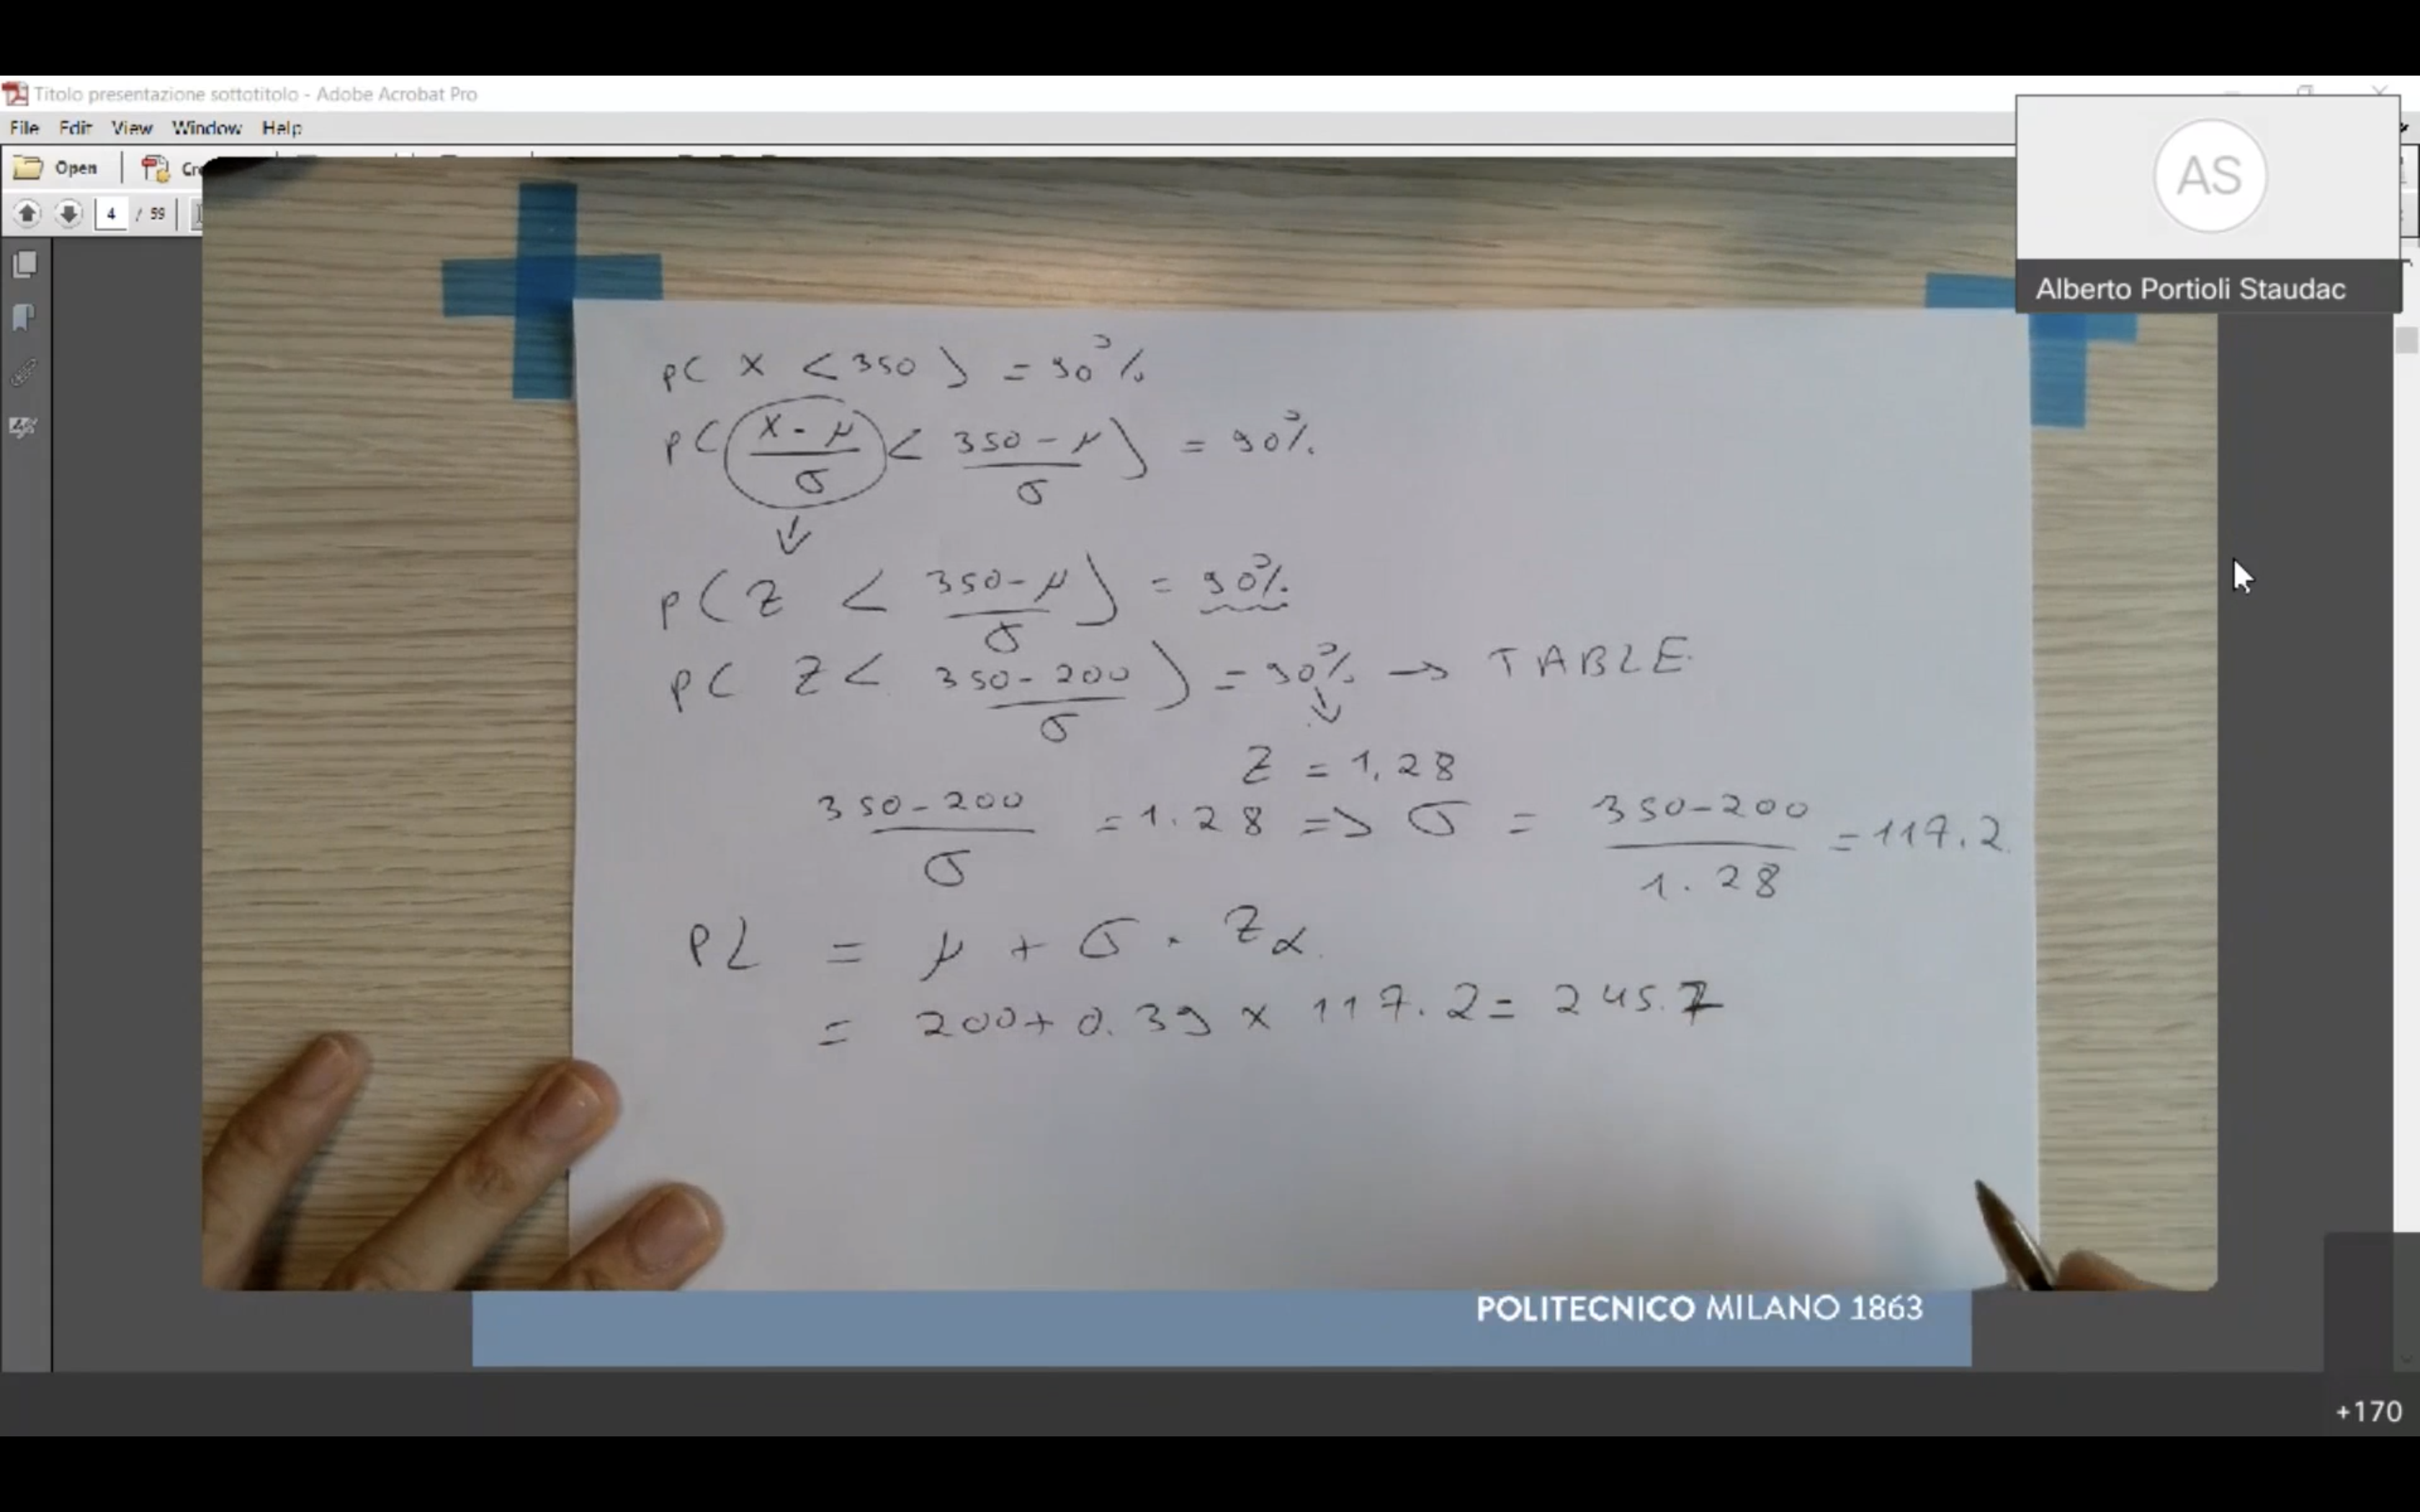 Titolo presentazione sottotitolo - Adobe Acrobat Pro
File Edit View Window Help
Open
4 / 59
AS
Alberto Portioli Staudac
P( X < 350 ) = 90%
P( (X - μ)/σ < (350 - μ)/σ ) = 90%
↓
P( Z < (350 - μ)/σ ) = 90%
P( Z < (350 - 200)/σ ) = 90% → TABLE
↓
Z = 1,28
(350 - 200)/σ = 1.28 => σ = (350 - 200)/1.28 = 117.2
PL = μ + σ · Zα
= 200 + 0.39 x 117.2 = 245.7
POLITECNICO MILANO 1863
+170